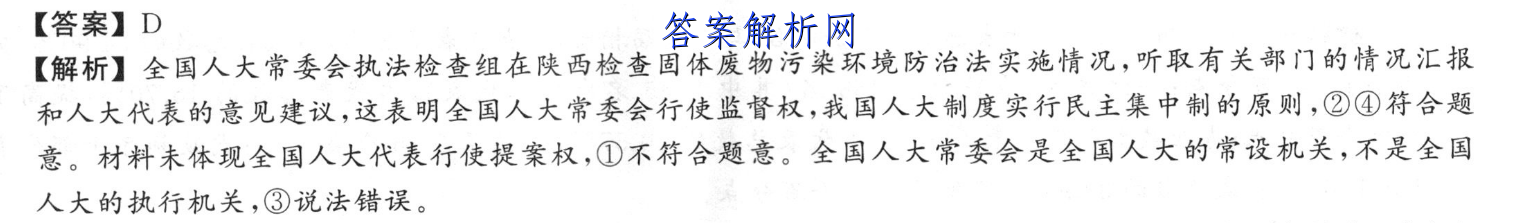 【答案】D
答案解析网
【解析】全国人大常委会执法检查组在陕西检查固体废物污染环境防治法实施情况,听取有关部门的情况汇报
和人大代表的意见建议,这表明全国人大常委会行使监督权,我国人大制度实行民主集中制的原则,②④符合题
意。材料未体现全国人大代表行使提案权,①不符合题意。全国人大常委会是全国人大的常设机关,不是全国
人大的执行机关,③说法错误。